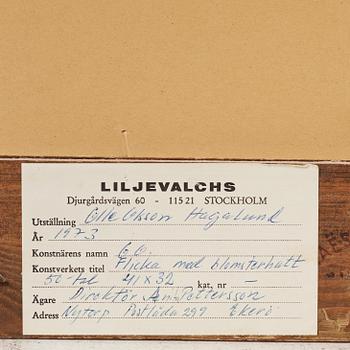 LILJEVALCHS
Djurgårdsvägen 60 - 115 21 STOCKHOLM
Utställning Olle Olsson Hagalund
År 1973
Konstnärens namn O.O.
Konstverkets titel Flicka med blomsterhatt
50-tal 41 x 32 kat. nr —
Ägare Direktör Pettersson
Adress Nytorp Postlåda 297 Ekerö